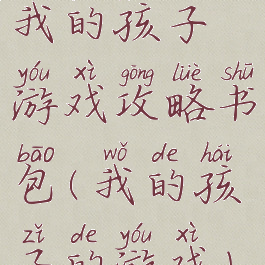 我的孩子
yóu xì gōng lüè shū
游戏攻略书
bāo wǒ de hái
包(我的孩
zǐ de yóu xì
子的游戏)